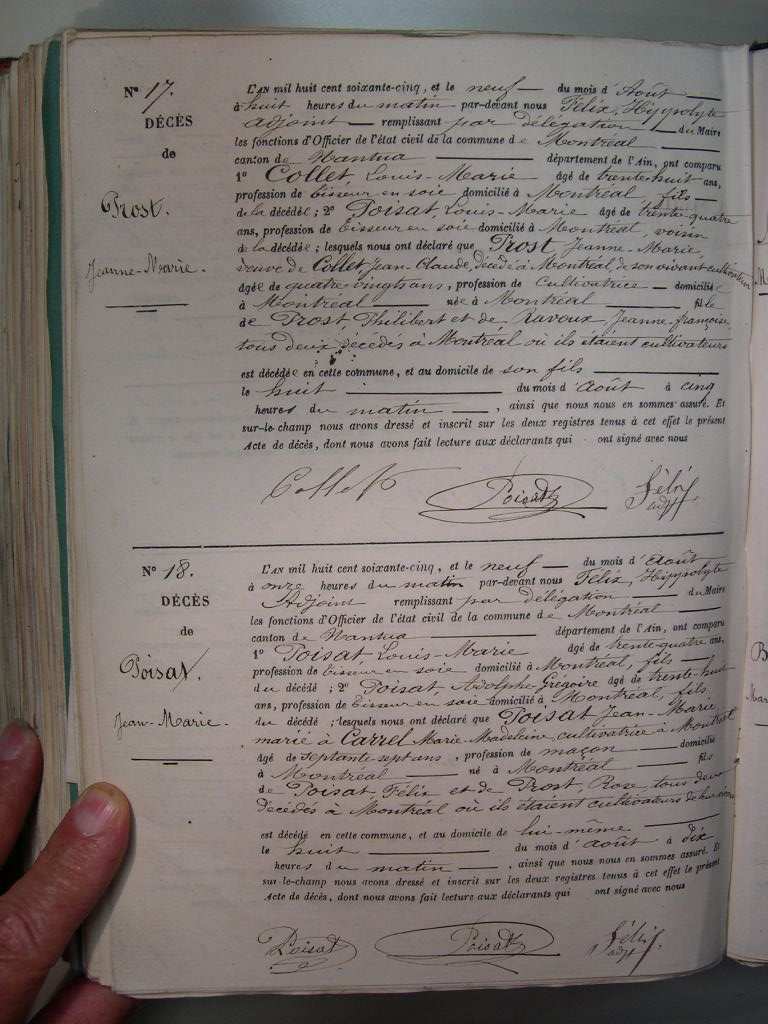 N° 17.
DÉCÈS
de
Prost.
Jeanne-Marie.
L'AN mil huit cent soixante-cinq, et le neuf du mois d'Août
à huit heures du matin par-devant nous Félix, Hippolyte
adjoint remplissant par délégation du Maire
les fonctions d'Officier de l'état civil de la commune de Montréal
canton de Nantua département de l'Ain, ont comparu
1° Collet Louis-Marie âgé de trente-huit ans,
profession de tisseur en soie domicilié à Montréal, fils
de la décédée; 2° Poisat Louis-Marie âgé de trente-quatre
ans, profession de tisseur en soie domicilié à Montréal, voisin
de la décédée; lesquels nous ont déclaré que Prost Jeanne-Marie,
veuve de Collet, Jean-Claude, décédé à Montréal, de son vivant cultivateur
âgée de quatre-vingts ans, profession de Cultivatrice domiciliée
à Montréal née à Montréal fille
de Prost, Philibert et de Ravoux Jeanne-françoise,
tous deux décédés à Montréal où ils étaient cultivateurs
est décédée en cette commune, et au domicile de son fils
le huit du mois d'août à cinq
heures du matin, ainsi que nous nous en sommes assuré. Et
sur-le-champ nous avons dressé et inscrit sur les deux registres tenus à cet effet le présent
Acte de décès, dont nous avons fait lecture aux déclarants qui ont signé avec nous
Collet Poisat Félix
adjt
N° 18.
DÉCÈS
de
Poisat
Jean-Marie.
L'AN mil huit cent soixante-cinq, et le neuf du mois d'Août
à onze heures du matin par-devant nous Félix, Hippolyte
Adjoint remplissant par délégation du Maire
les fonctions d'Officier de l'état civil de la commune de Montréal
canton de Nantua département de l'Ain, ont comparu
1° Poisat Louis-Marie âgé de trente-quatre ans,
profession de tisseur en soie domicilié à Montréal, fils
du décédé; 2° Poisat, Adolphe Grégoire âgé de trente-huit
ans, profession de tisseur en soie domicilié à Montréal, fils
du décédé; lesquels nous ont déclaré que Poisat Jean-Marie,
marié à Carrel Marie-Madeleine, cultivatrice à Montréal
âgé de septante-sept ans, profession de maçon domicilié
à Montréal né à Montréal fils
de Poisat, Félix et de Prost, Rose, tous deux
décédés à Montréal où ils étaient cultivateurs
est décédé en cette commune, et au domicile de lui-même
le huit du mois d'août à dix
heures du matin, ainsi que nous nous en sommes assuré. Et
sur-le-champ nous avons dressé et inscrit sur les deux registres tenus à cet effet le présent
Acte de décès, dont nous avons fait lecture aux déclarants qui ont signé avec nous
Poisat Poisat Félix
adjt